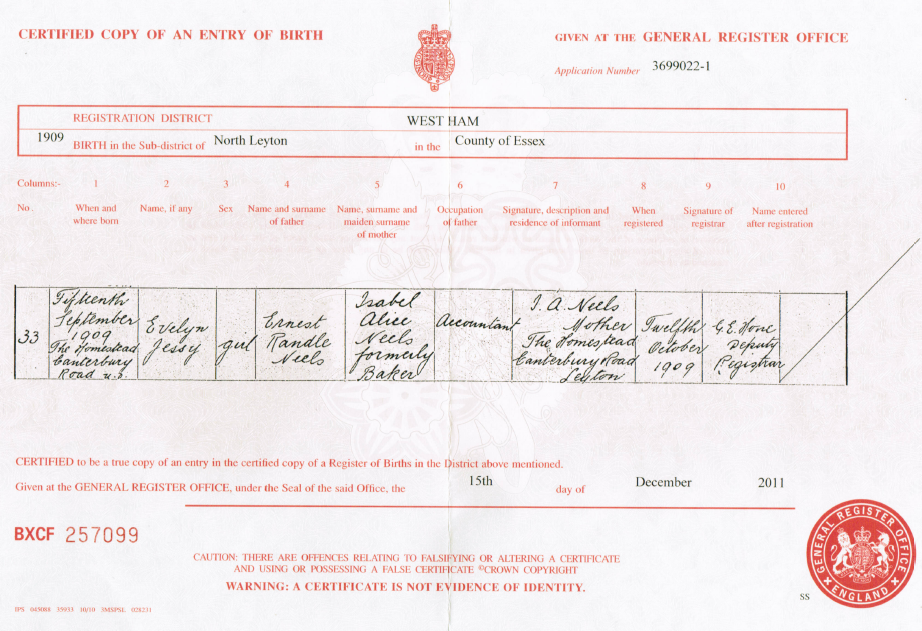 CERTIFIED COPY OF AN ENTRY OF BIRTH
GIVEN AT THE GENERAL REGISTER OFFICE
Application Number 3699022-1
REGISTRATION DISTRICT WEST HAM
1909 BIRTH in the Sub-district of North Leyton in the County of Essex
Columns:- 1 2 3 4 5 6 7 8 9 10
No. When and where born Name, if any Sex Name and surname of father Name, surname and maiden surname of mother Occupation of father Signature, description and residence of informant When registered Signature of registrar Name entered after registration
33
Fifteenth
September
1909
The Homestead
Canterbury
Road
Evelyn
Jessy
girl
Ernest
Randle
Neels
Isabel
Alice
Neels
formerly
Baker
Accountant
I. A. Neels
Mother
The Homestead
Canterbury Road
Leyton
Twelfth
October
1909
G.E.
Deputy
Registrar
CERTIFIED to be a true copy of an entry in the certified copy of a Register of Births in the District above mentioned.
Given at the GENERAL REGISTER OFFICE, under the Seal of the said Office, the 15th day of December 2011
BXCF 257099
CAUTION: THERE ARE OFFENCES RELATING TO FALSIFYING OR ALTERING A CERTIFICATE
AND USING OR POSSESSING A FALSE CERTIFICATE ©CROWN COPYRIGHT
WARNING: A CERTIFICATE IS NOT EVIDENCE OF IDENTITY.
GENERAL REGISTER OFFICE
ENGLAND
SS